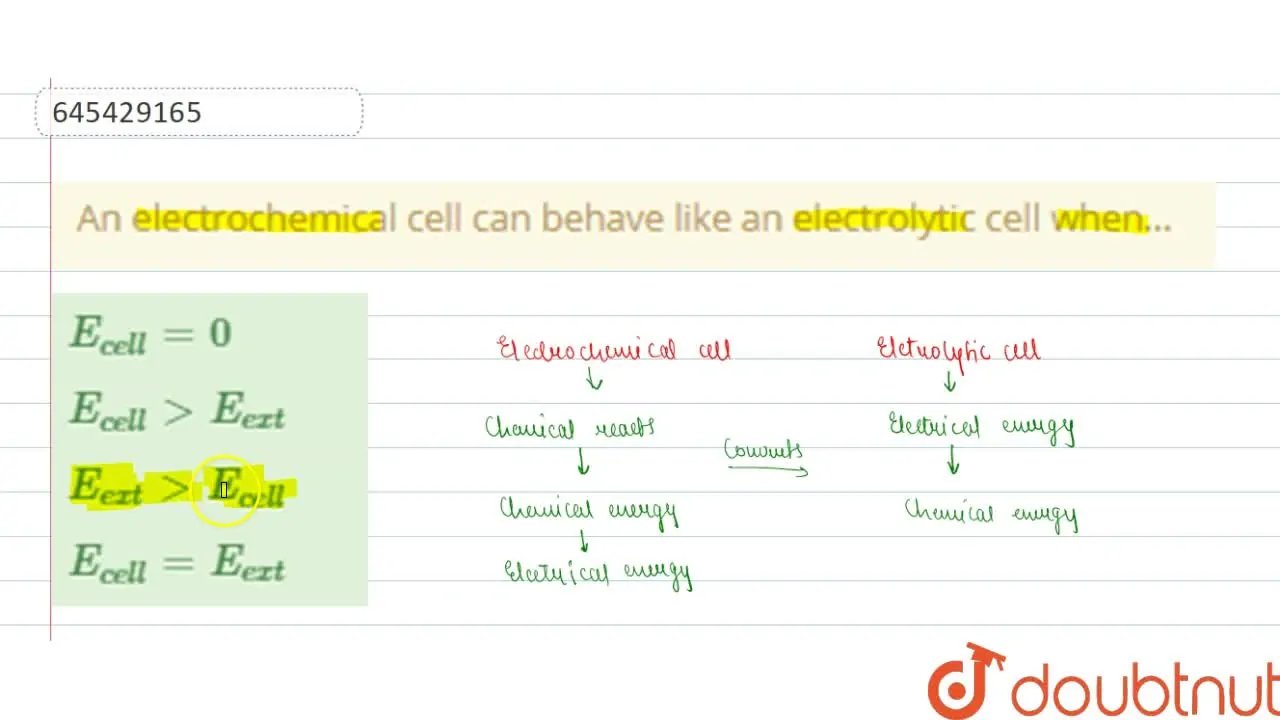 645429165
An electrochemical cell can behave like an electrolytic cell when...
E_cell = 0
E_cell > E_ext
E_ext > E_cell
E_cell = E_ext
Electrochemical cell
Chemical reacts
Chemical energy
Electrical energy
Converts
Elctrolytic cell
Electrical energy
Chemical energy
doubtnut